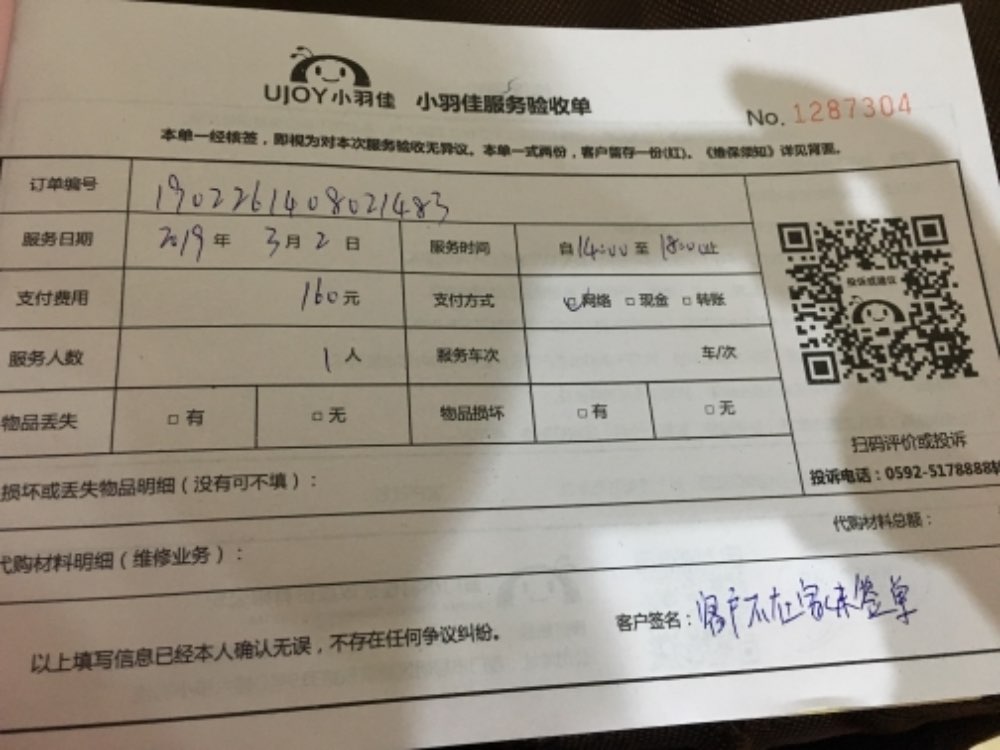 UJOY小羽佳 小羽佳服务验收单
No. 1287304
本单一经核签，即视为对本次服务验收无异议。本单一式两份，客户留存一份(红)。《维保须知》详见背面。
订单编号 1902261408021483
服务日期 2019 年 3 月 2 日 服务时间 自 14:00 至 18:00 止
支付费用 160 元 支付方式 ☑网络 □现金 □转账
投诉或建议
服务人数 1 人 服务车次 车/次
物品丢失 □有 □无 物品损坏 □有 □无
扫码评价或投诉
投诉电话：0592-5178888转
损坏或丢失物品明细（没有可不填）：
代购材料总额：
代购材料明细（维修业务）：
以上填写信息已经本人确认无误，不存在任何争议纠纷。 客户签名：客户不在家未签单